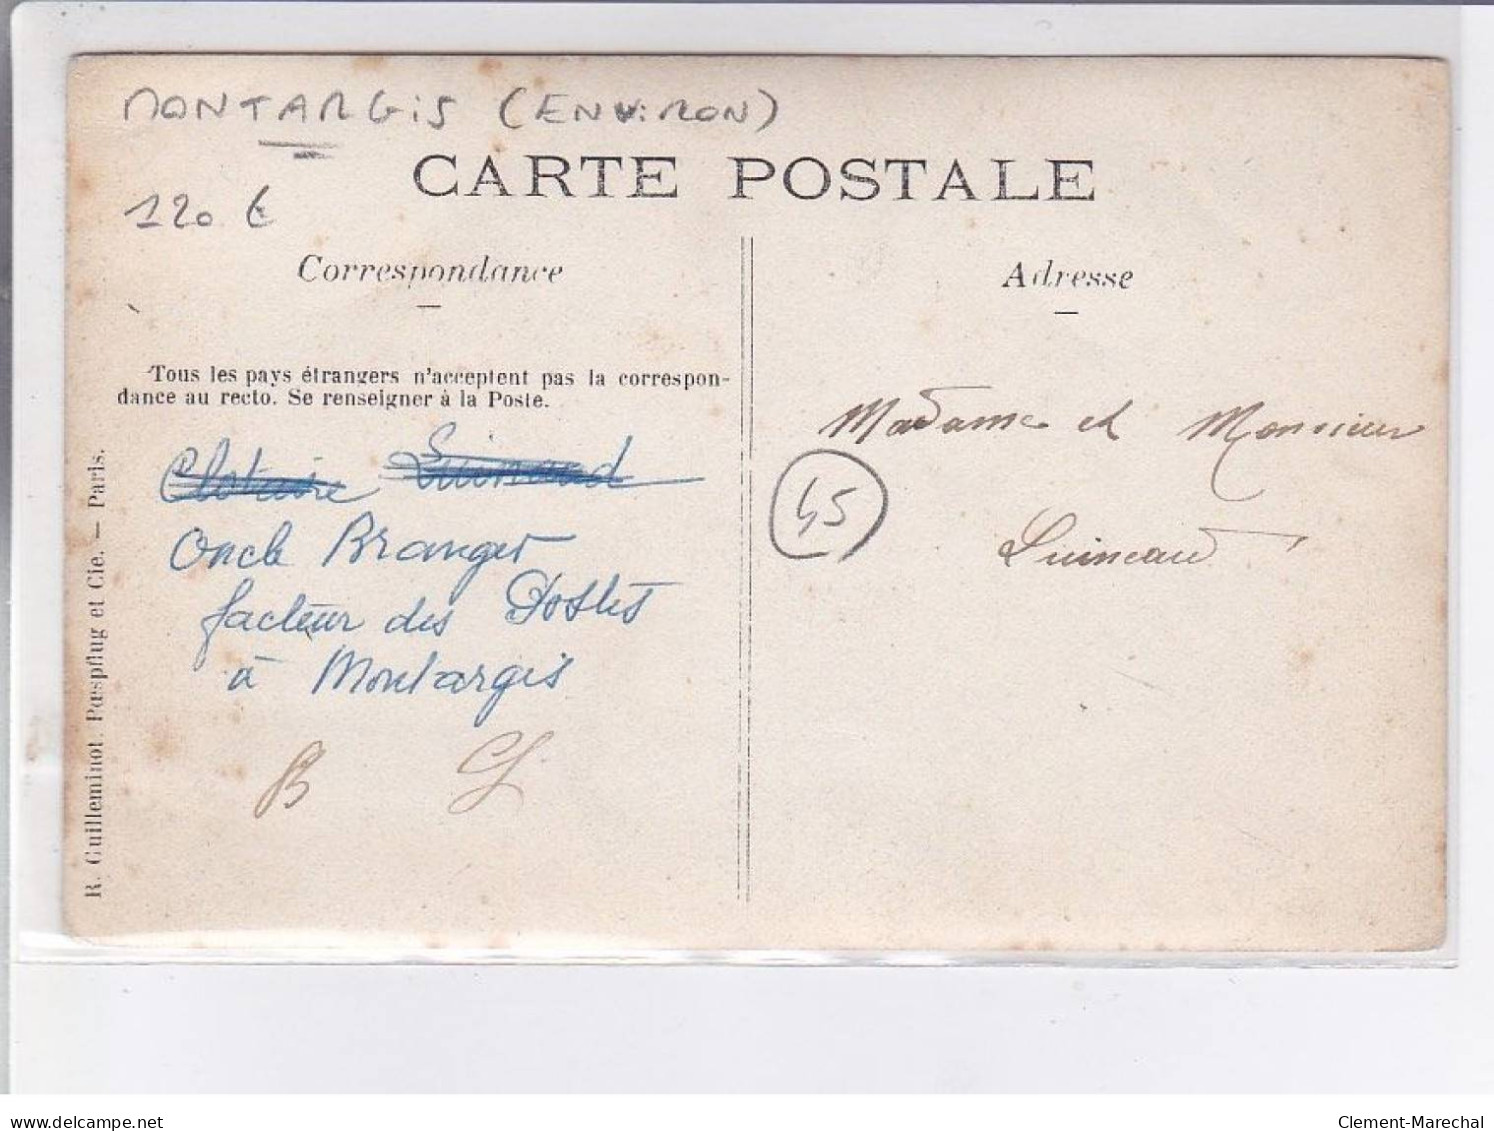 MONTARGIS (ENViRON)
120 €
CARTE POSTALE
Correspondance
Adresse
Tous les pays étrangers n'acceptent pas la correspon-
dance au recto. Se renseigner à la Poste.
Clotaire Luineaud
Oncle Branger
facteur des Postes
à Montargis
B L
Madame et Monsieur
Luineaud
45
R. Guilleminot, Pœspflug et Cie. — Paris.
delcampe.net
Clement-Marechal